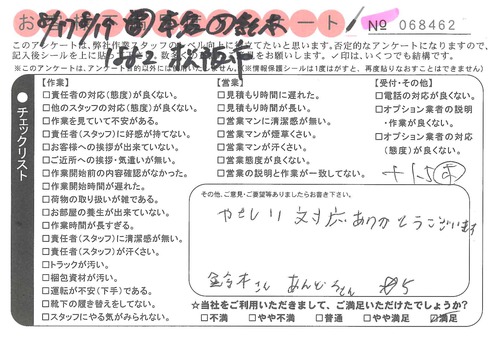 お ート
№ 068462
このアンケートは、弊社作業スタッフのレベル向上に役立てたいと思います。否定的なアンケートになりますので、
記入後シールを上に貼 お願いします。✓印は、いくつでも結構です。
※このアンケートは、アンケート目的以外には ※情報保護シールは1度はがすと、再度貼りなおすことはできません。
チェックリスト
【作業】
□責任者の対応(態度)が良くない。
□他のスタッフの対応(態度)が良くない。
□作業を見ていて不安がある。
□責任者(スタッフ)に好感が持てない。
□お客様への挨拶が出来ていない。
□ご近所への挨拶・気遣いが無い。
□作業開始前の内容確認がなかった。
□作業開始時間が遅れた。
□荷物の取り扱いが雑である。
□お部屋の養生が出来ていない。
□作業時間が長すぎる。
□責任者(スタッフ)に清潔感が無い。
□責任者(スタッフ)が汗くさい。
□トラックが汚い。
□梱包資材が汚い。
□運転が不安(下手)である。
□靴下の履き替えをしてない。
□スタッフにやる気がみられない。
【営業】
□見積もり時間に遅れた。
□見積もり時間が長い。
□営業マンに清潔感が無い。
□営業マンが煙草くさい。
□営業マンが汗くさい。
□営業態度が良くない。
□営業の説明と作業が一致してない。
【受付・その他】
□電話の対応が良くない。
□オプション業者の説明
・作業が良くない。
□オプション業者の対応
(態度)が良くない。
その他、ご意見・ご要望等ありましたらお書き下さい。
やさしい 対応 ありがとうございます
鈴木さん あんどうさん
☆当社をご利用いただきまして、ご満足いただけたでしょうか?
□不満 □やや不満 □普通 □やや満足 ☑満足